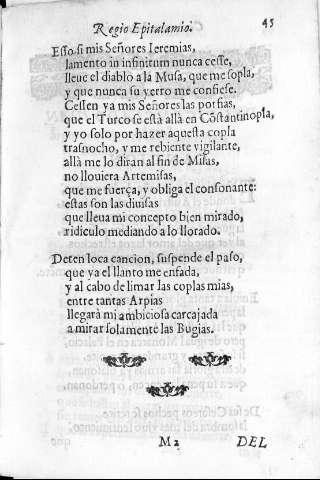 Regio Epitalamio. 45
Esso si mis Señores Ieremias,
lamento in infinitum nunca cesse,
lleue el diablo a la Musa, que me sopla,
y que nunca su yerro me confiese.
Cessen ya mis Señores las porfias,
que el Turco se està allà en Cõstantinopla,
y yo solo por hazer aquesta copla
trasnocho, y me rebiente vigilante,
allà me lo diran al fin de Missas,
no llouiera Artemisas,
que me fuerça, y obliga el consonante:
estas son las diuisas
que lleua mi concepto bien mirado,
ridiculo mediando a lo llorado.
Deten loca cancion, suspende el passo,
que ya el llanto me enfada,
y al cabo de limar las coplas mias,
entre tantas Arpias
llegarà mi ambiciosa carcajada
a mirar solamente las Bugias.
M2 DEL